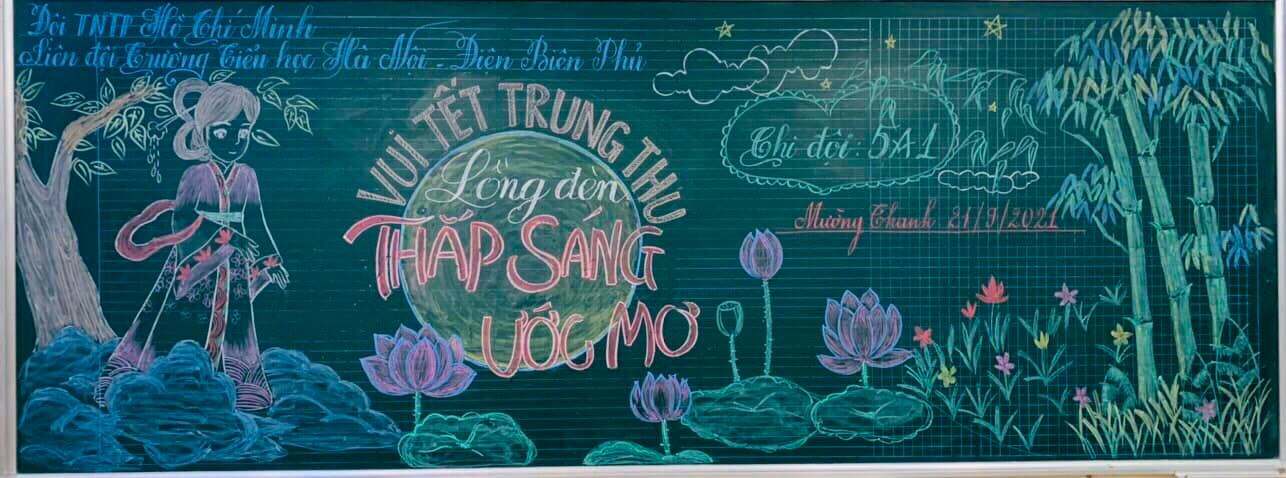 Đội TNTP Hồ Chí Minh
Liên đội Trường Tiểu học Hà Nội - Điện Biên Phủ
VUI TẾT TRUNG THU
Lồng đèn
THẮP SÁNG
ƯỚC MƠ
Chi đội: 5A1
Mường Thanh 21/9/2021